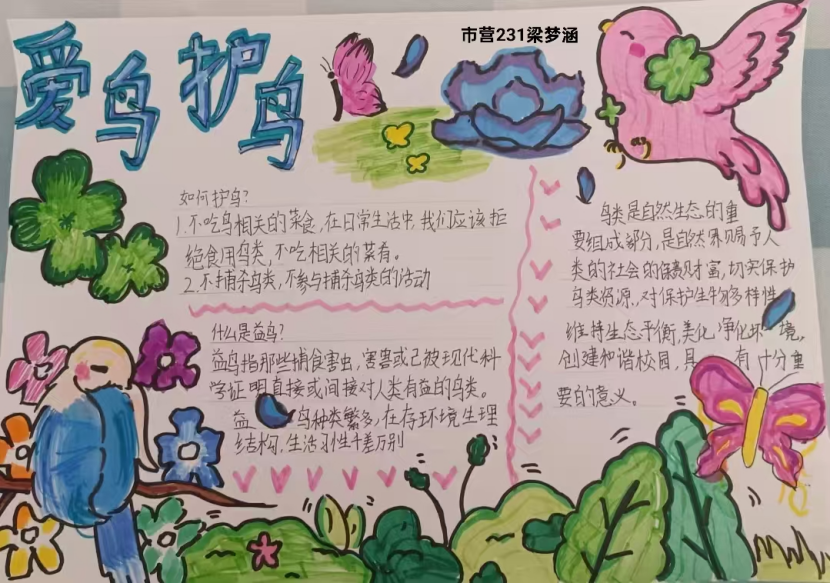 爱鸟护鸟
市营231梁梦涵
如何护鸟?
1.不吃鸟相关的菜食,在日常生活中,我们应该拒
绝食用鸟类,不吃相关的菜肴。
2.不捕杀鸟类,不参与捕杀鸟类的活动
什么是益鸟?
益鸟指那些捕食害虫,害兽或已被现代科
学证明直接或间接对人类有益的鸟类。
益鸟种类繁多,在存环境生理
结构,生活习性千差万别
鸟类是自然生态的重
要组成部分,是自然界赐予人
类的社会的财富,切实保护
鸟类资源,对保护生物多样性
维持生态平衡,美化净化环境,
创建和谐校园,具有十分重
要的意义。